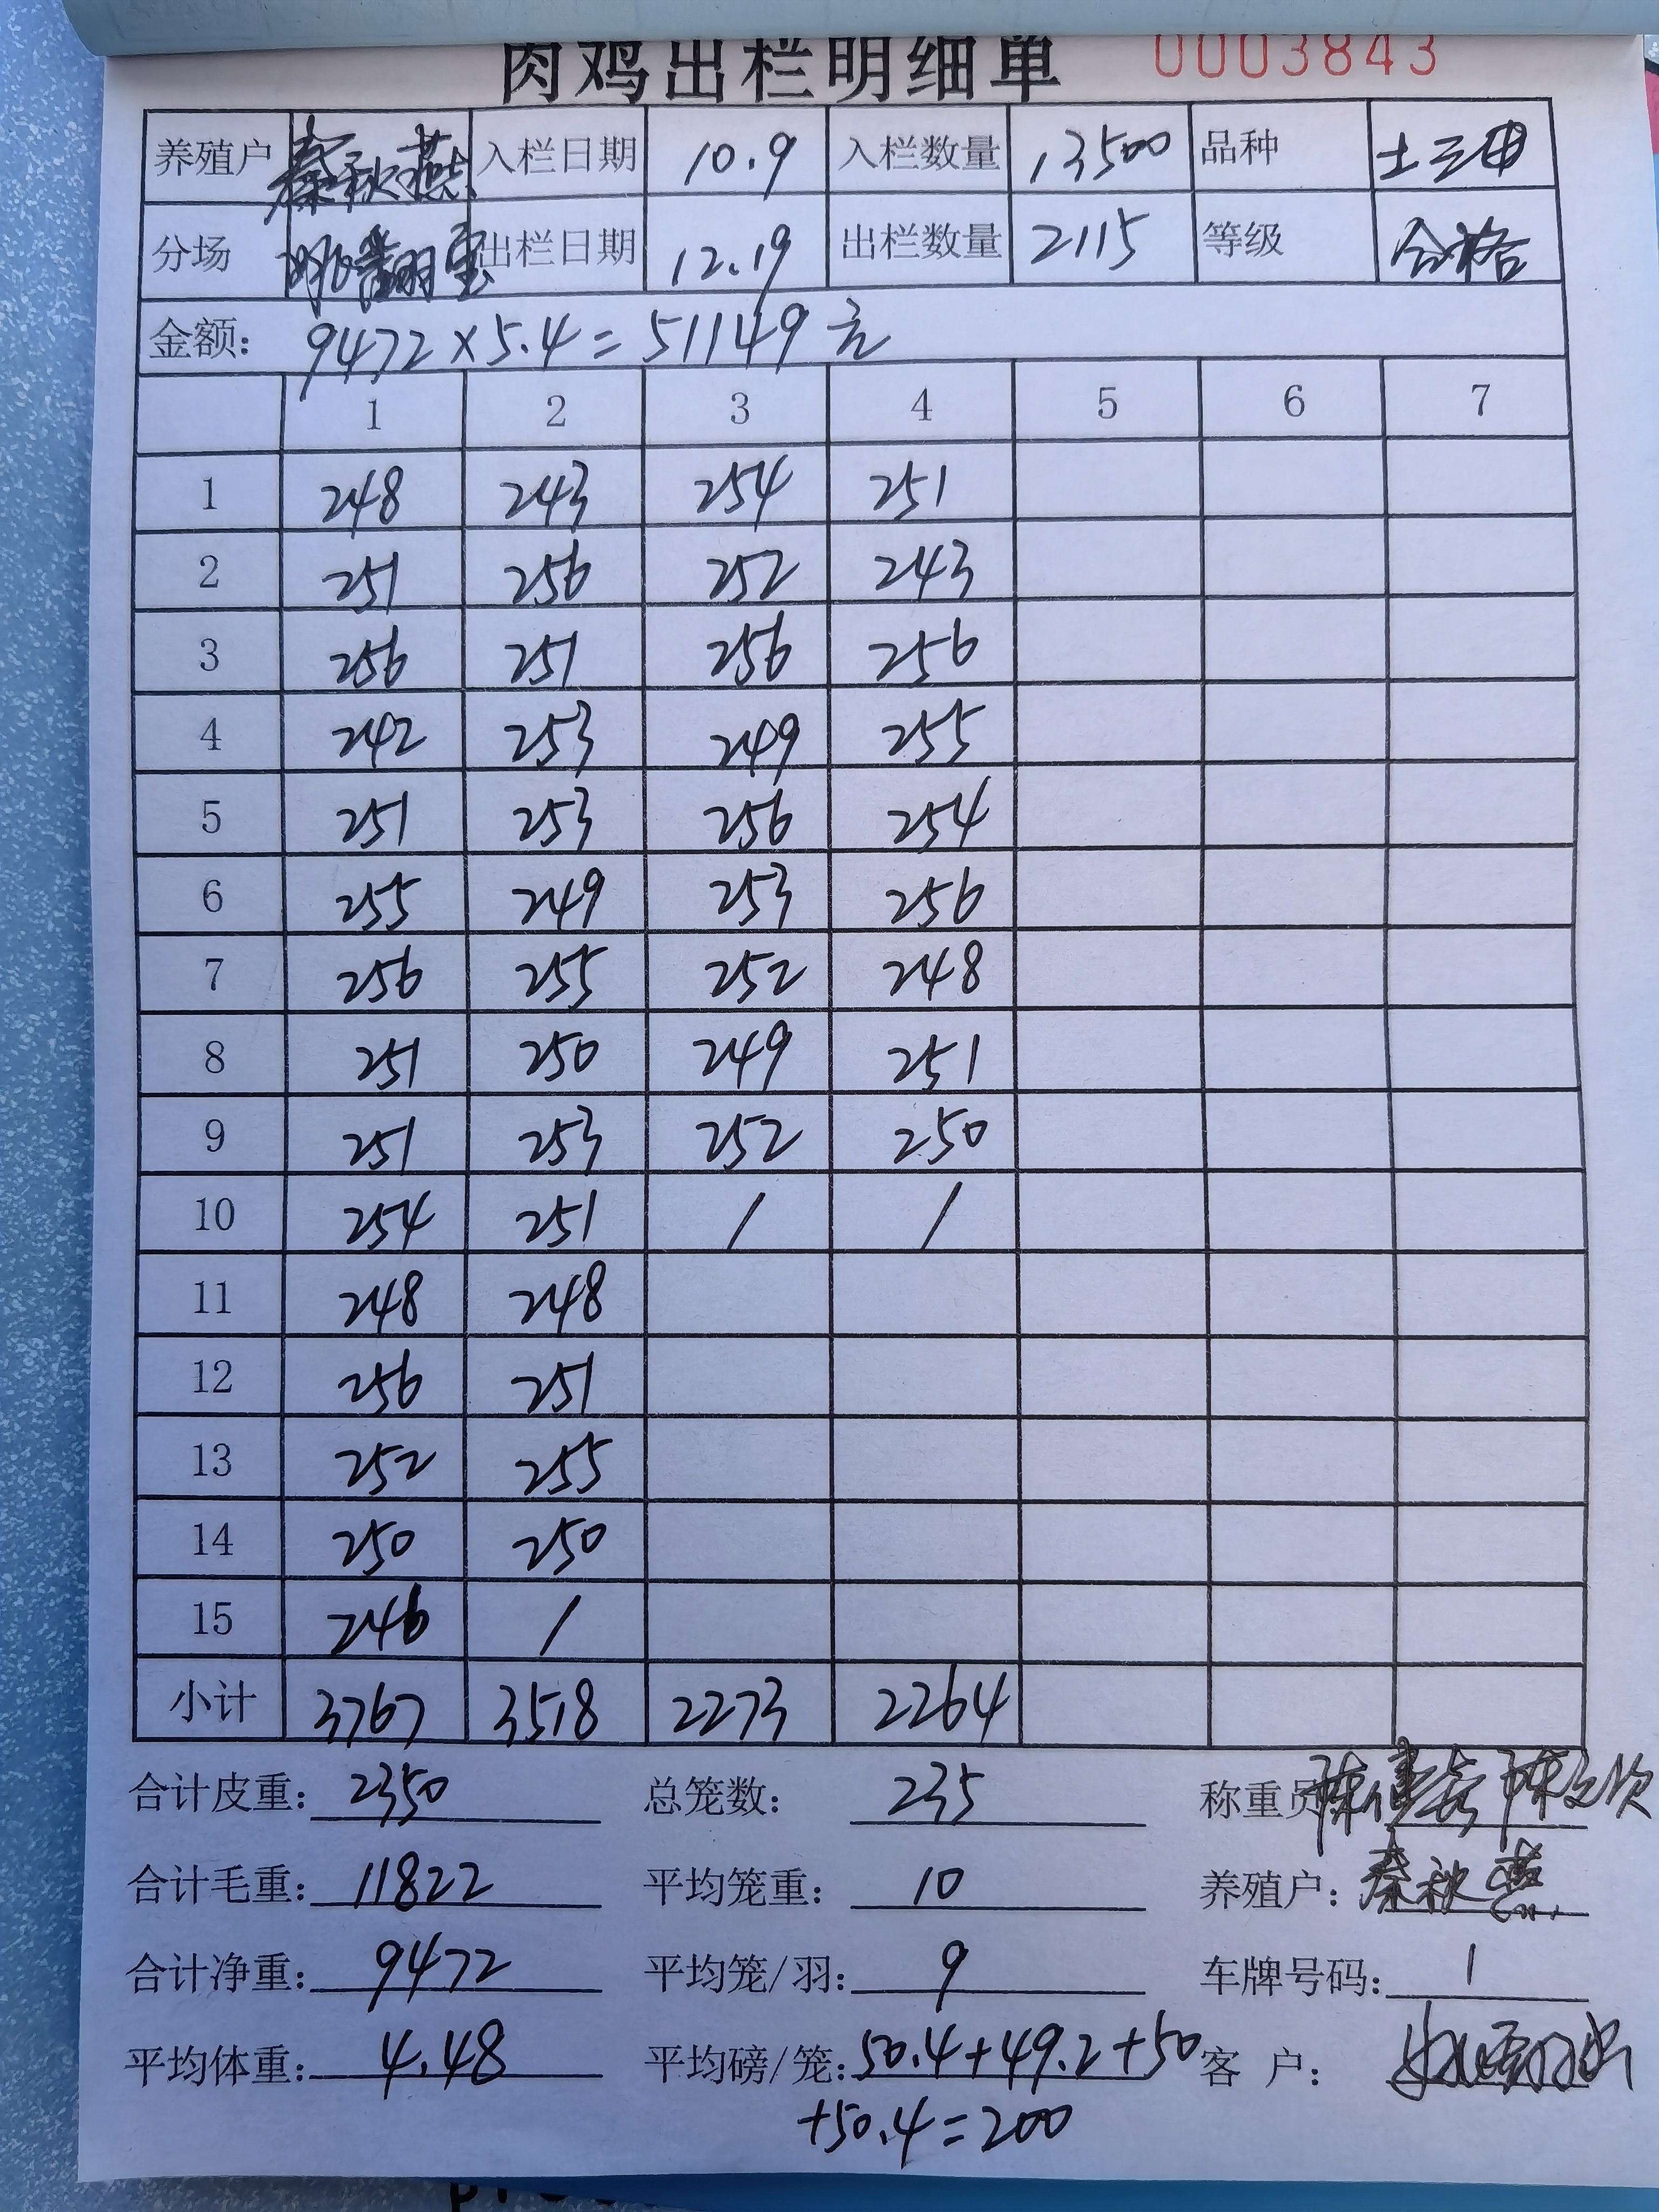 肉鸡出栏明细单 0003843
养殖户 秦秋燕 入栏日期 10.9 入栏数量 13500 品种 土三
分场 出栏日期 12.19 出栏数量 2115 等级 合格
金额: 9472×5.4=51149元
1 2 3 4 5 6 7
1 248 243 254 251
2 251 256 252 243
3 256 251 256 256
4 242 253 249 255
5 251 253 256 254
6 255 249 253 256
7 256 255 252 248
8 251 250 249 251
9 251 253 252 250
10 254 251 / /
11 248 248
12 256 251
13 252 255
14 250 250
15 246 /
小计 3767 3518 2273 2264
合计皮重: 2350 总笼数: 235 称重员
合计毛重: 11822 平均笼重: 10 养殖户: 秦秋燕
合计净重: 9472 平均笼/羽: 9 车牌号码: 1
平均体重: 4.48 平均磅/笼: 50.4+49.2+50 客户:
+50.4=200